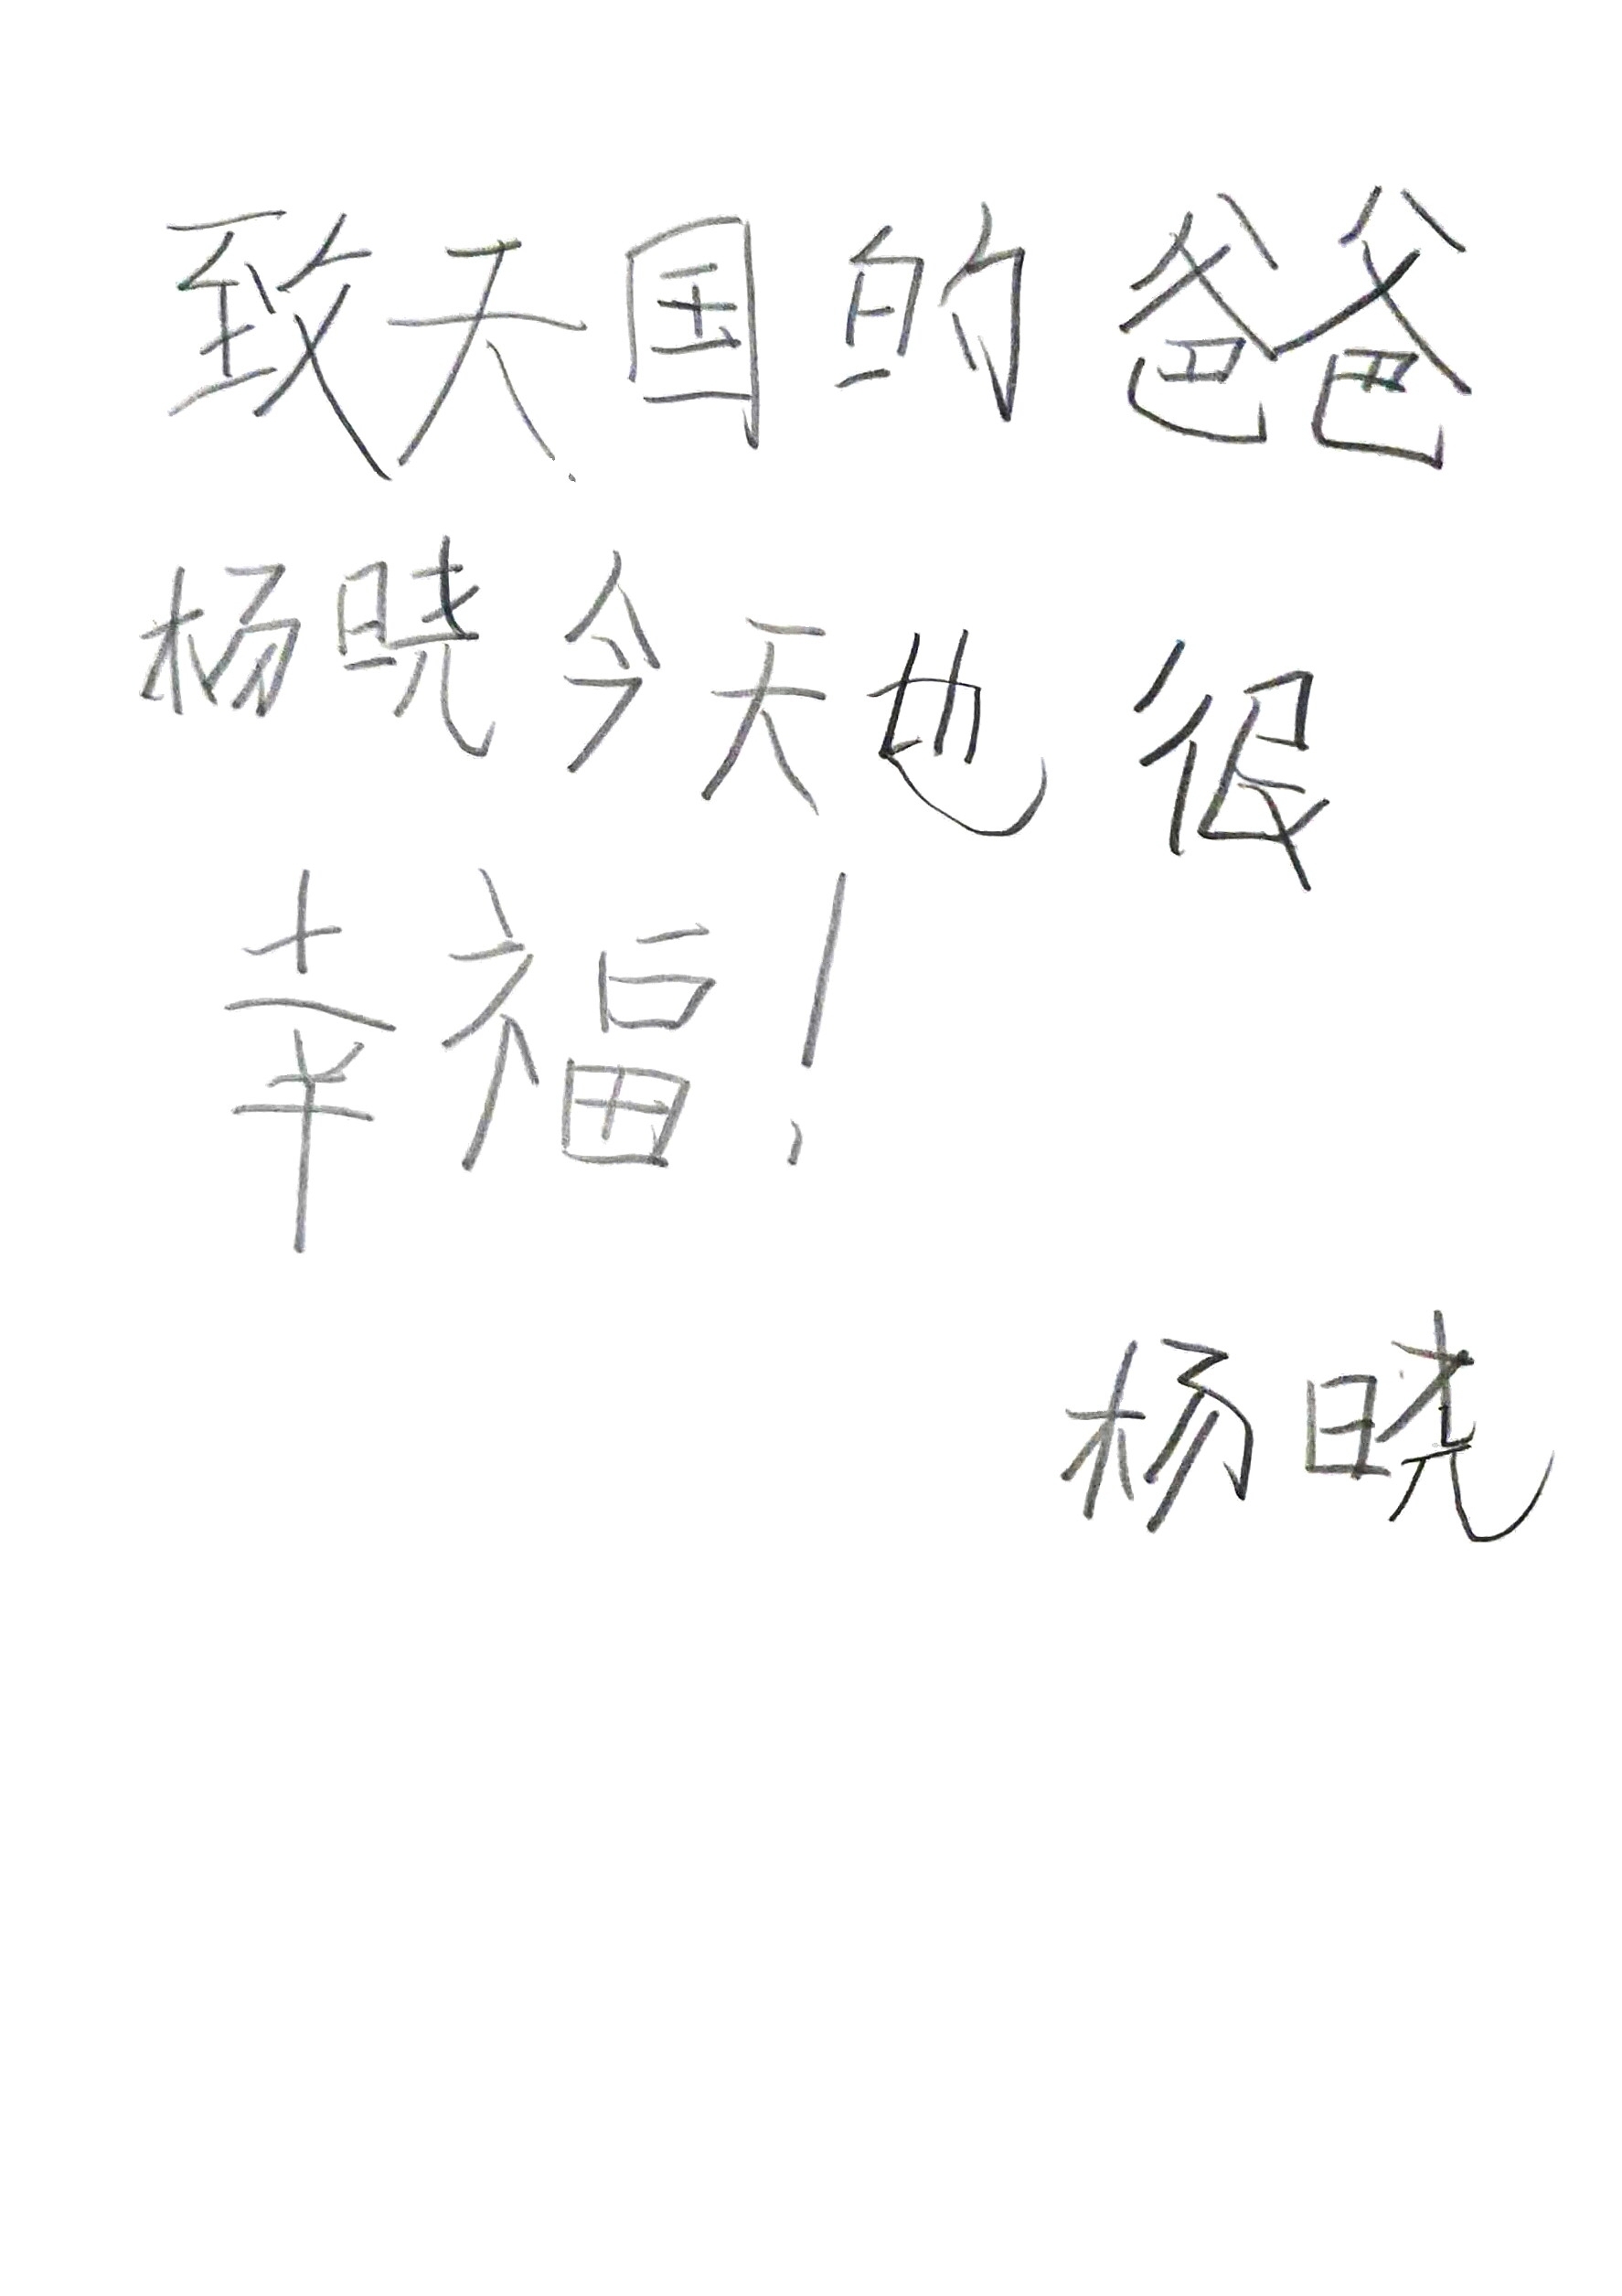 致天国的爸爸
杨晓今天也很
幸福！
杨晓